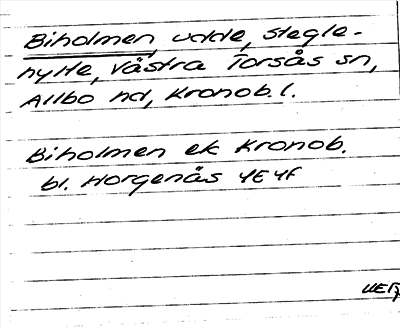 Biholmen, udde, Stegle-
hylte, Västra Torsås sn,
Allbo hd, Kronob. l.
Biholmen ek Kronob.
bl. Horgenäs 4E4f